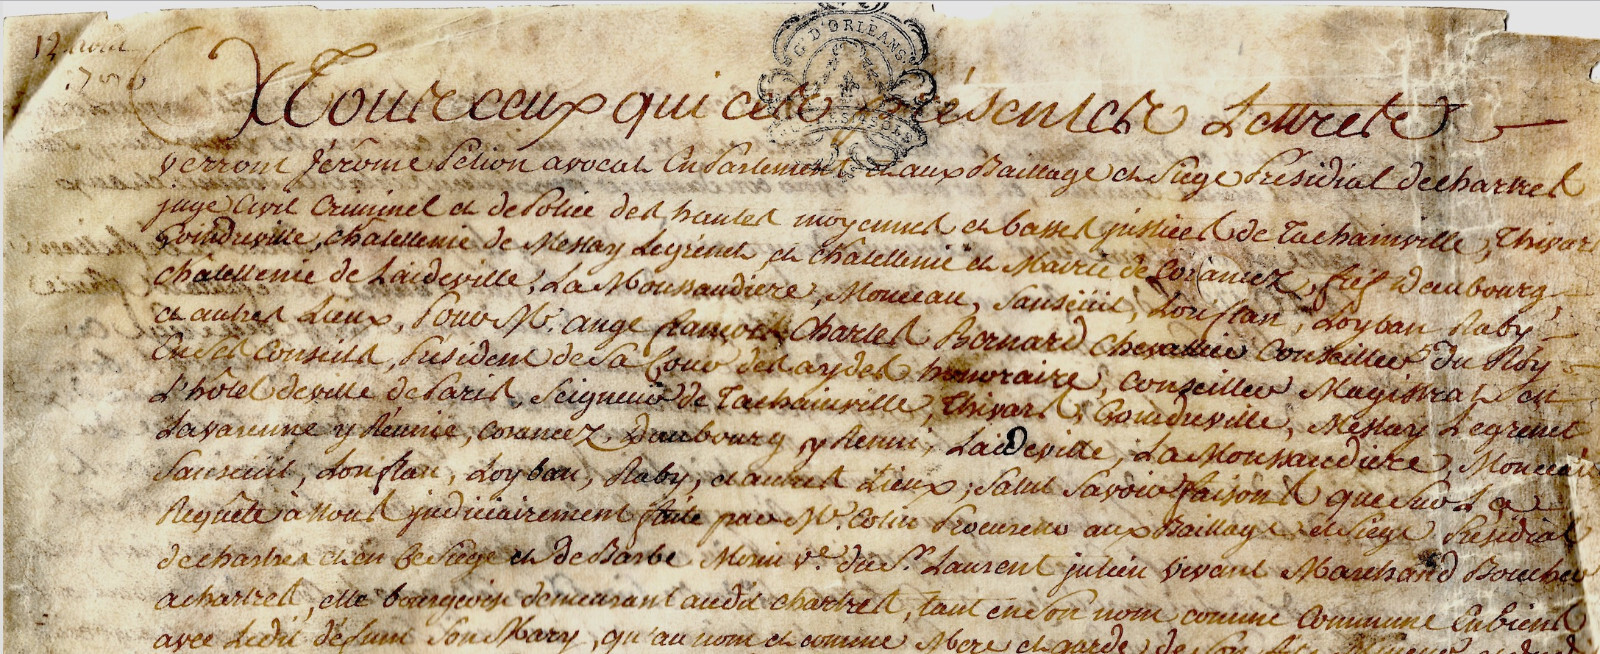 12 aout
175
G. D'ORLEANS
A Tous ceux qui ces présentes Lettres
verront Jérôme Pétion avocat En Parlement et aux Bailliage et Siège Présidial de chartres
juge Civil Criminel et de Police des hautes moyennes et basses justices de Tachainville, Thivars
Goindreville, chatellenie de Meslay Legrenet, et chatellenie et Mairie de Corancez, fief Daubourg,
chatellenie de Laideville, La Moussaudiere, Monceau, Sanseuil, Lonflan, Loyban, Raby
et autres Lieux, Pour Mr. ange françois Charles Bernard Chevallier Conseiller du Roy
En ses Conseils, Président de Sa Cour des aydes honoraire, Conseiller Magistrat en
L'hôtel deville de Paris, Seigneur de Tachainville, Thivars, Goindreville, Meslay Legrenet
Lavarenne y Réunie, Corancez, Daubourg y Reuni, Laideville, La Moussaudiere, Monceau
Sanseuil, Lonflan, Loyban, Raby, et autres Lieux; Salut Savoir faisons que sur La
Requête à nous judiciairement faite par Mr. Colin Procureur aux Bailliage et Siège Présidial
de chartres et en ce Siège et de Barbe Morin ve. du Sr. Laurent julien vivant Marchand Boucher
a chartres, elle bourgeoise demeurant audit chartres, tant en son nom comme Commune En biens
avec Ledit défunt Son Mary, qu'au nom et comme Mere et garde de Son fils Mineur